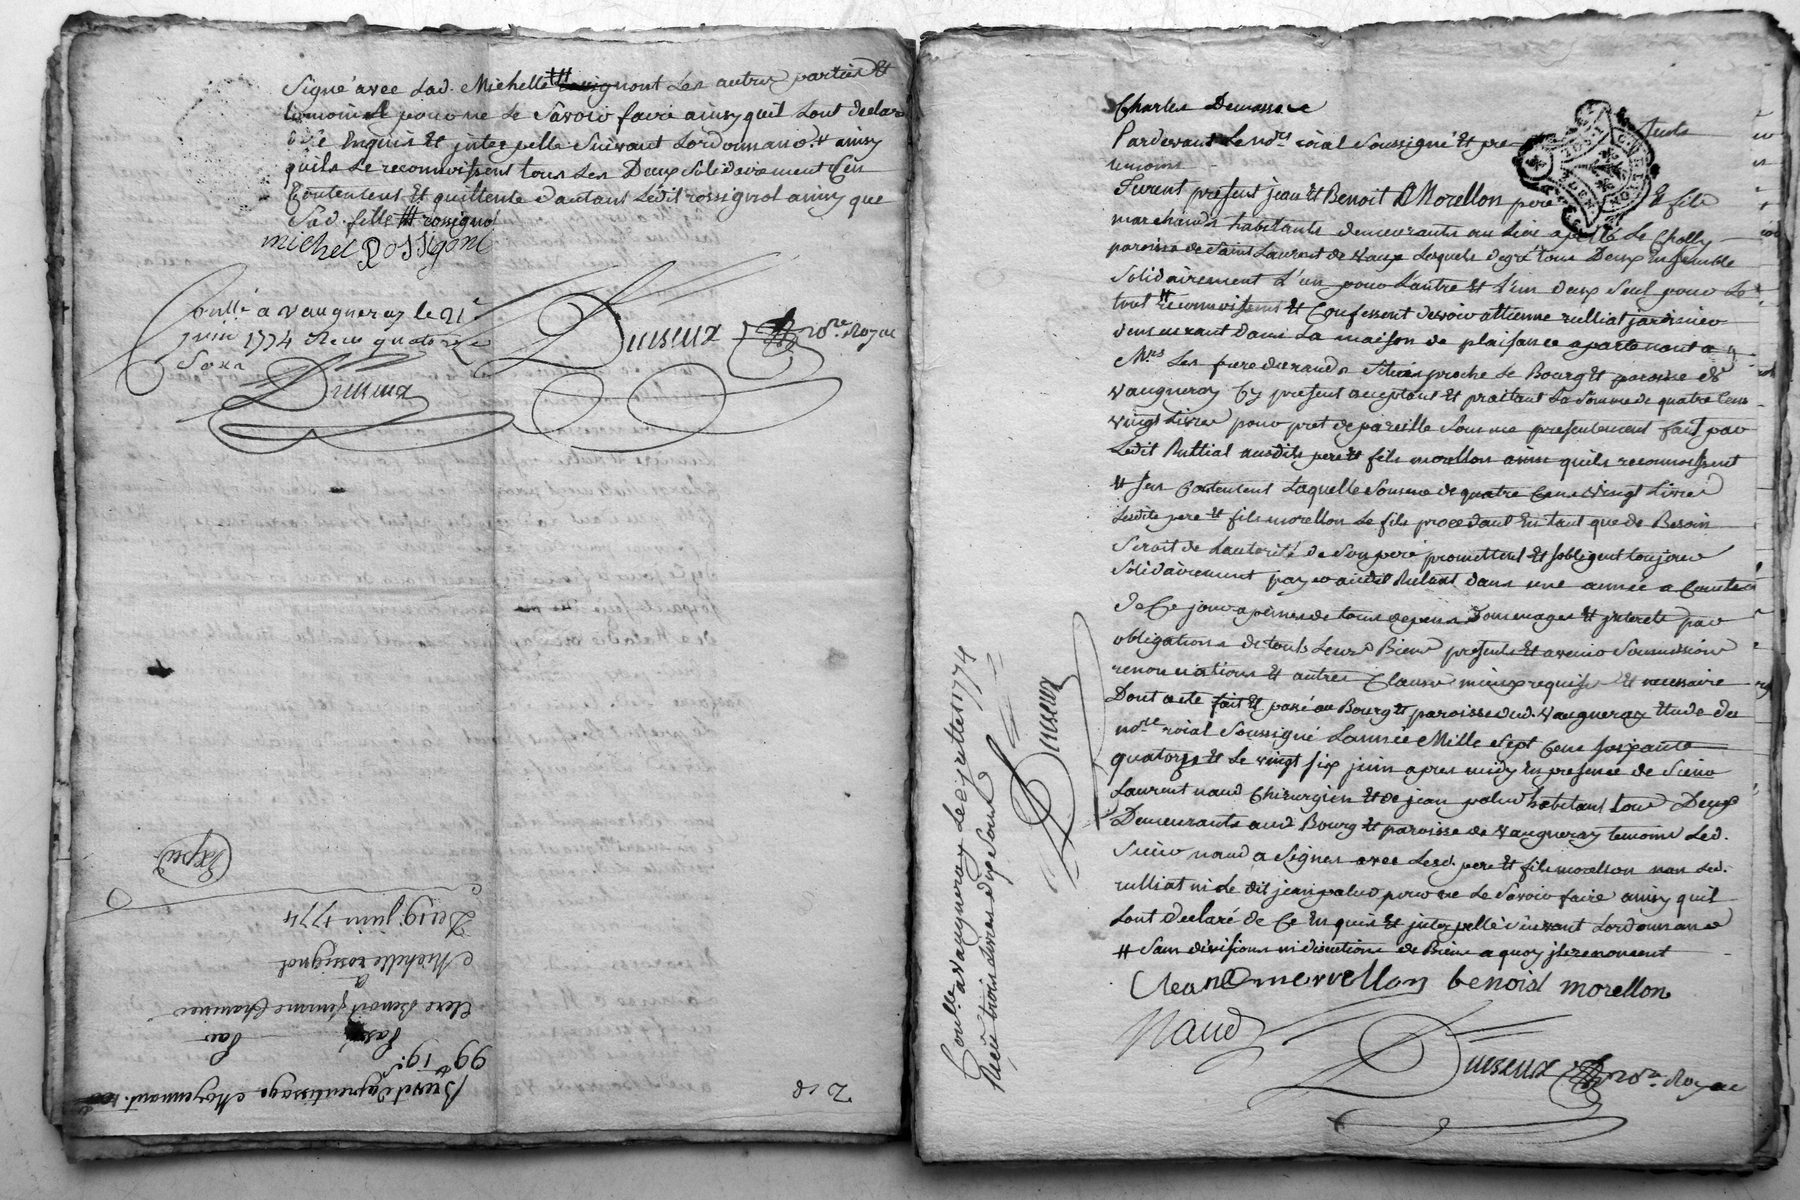 Signé avec Lad. Michelle rossignont Les autres parties Et
temoins pour ne le Savoir faire ainsy quil Lont declaré
de ce Enquis Et interpellé Suivant Lordonnance Et ainsy
quils Le reconnoissent tous Les Deux Solidairement S'en
Contentent Et quittente dautant Ledit rossignol ainsy que
Sad. fille rossignol
michel Rossigont
Conllé a vaugneray le 21e
juin 1774 Reçu quatorze
Sols
Duiseux
Duiseux no.re Royal
Exped
Du 19 juin 1774
Michelle rossignol
a
Clere Benoit femme
Passé par
99t 19s
Brevet daprentissage Moyennant
218
Charles Demasse
Pardevant Le no.re roial Soussigné Et pre
temoins
Furent present jean Et Benoit Morellon pere Et fils
marchands habitants demeurants au Lieu apellé Le Cholly
paroisse de Saint Laurent de Vaux Lesquels de gré tous Deux Ensemble
Solidairement L'un pour Lautre Et L'un deux Seul pour Le
tout # reconnoissent Et Confessent devoir a Etienne rulliat jardinier
demeurant dans La maison de plaisance apartenant a
Mrs Les frere durand Située proche Le Bourg Et paroisse de
Vaugneray Cy present acceptant Et traitant La Somme de quatre Cens
vingt Livres pour pret de pareille Somme presentement fait par
Ledit Rulliat ausdits pere Et fils morellon ainsi quils reconnoissent
Et s'en Contentent Laquelle Somme de quatre Cens vingt Livres
Lesdits pere Et fils morellon Le fils procedant En tant que de Besoin
Seroit de Lautorité de Son pere promettent Et Sobligent toujours
Solidairement payer audit Ruliat dans une année a Compter
de Ce jour a peines de tous depens Dommages Et interets par
obligations de touts Leurs Biens presents Et avenir Soumissions
renonciations Et autres Clauses mieux requises Et necessaire
Dont acte fait Et passé au Bourg Et paroisse dud. Vaugneray Etude du
no.re roial Soussigné Lannée Mille Sept Cens Soixante
quatorze Et Le vingt six juin apres midy En presence de Sieur
Laurent naud Chirurgien Et de jean palud habitant tous Deux
Demeurants aud. Bourg Et paroisse de Vaugneray temoins Led.
Sieur naud a Signer avec Lesd. pere Et fils morellon non Led.
rulliat ni Le dit jean palud pour ne Le Savoir faire ainsy quil
Lont declaré de Ce Enquis Et interpellé Suivant Lordonnance
# Sans divisions ni discutions de Biens a quoy ils renoncent
Jean morellon benoist morellon
Naud
Duiseux no.re Royal
Conllé a Vaugneray Le 2 juillet 1774
Reçu trois Livres dix Sous
Duiseux